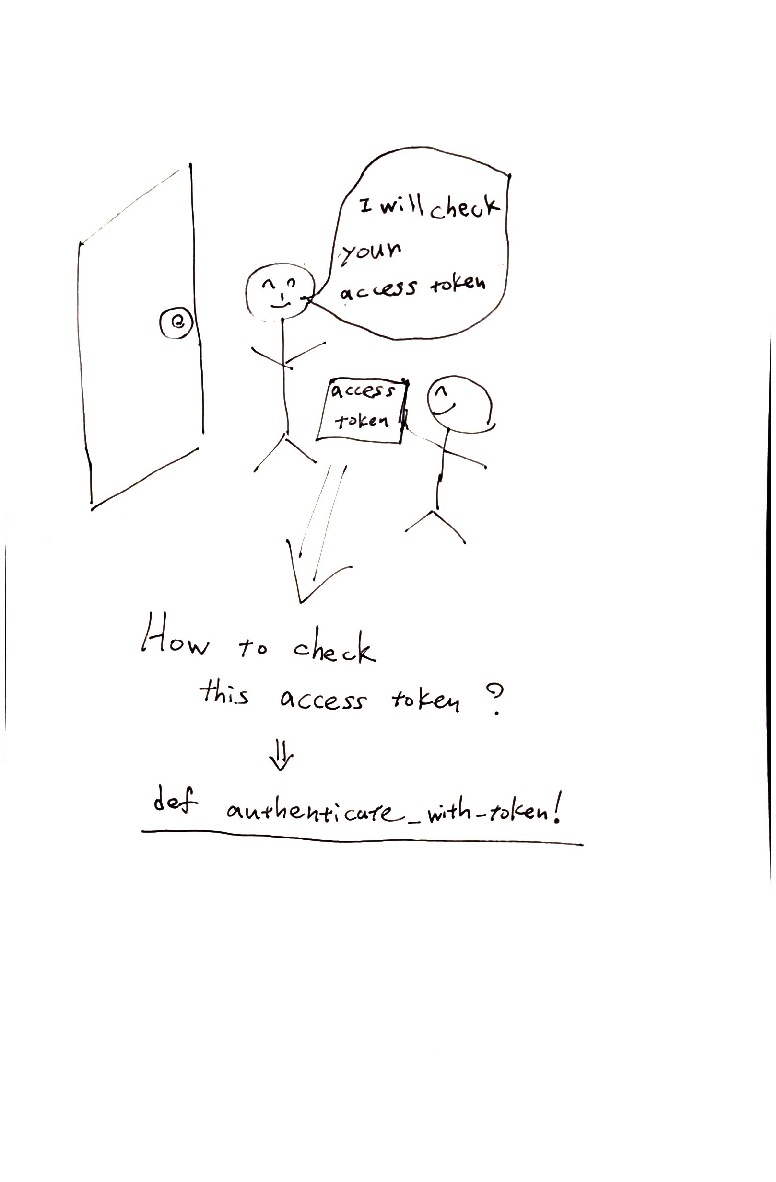 I will check
your
access token
access
token
How to check
this access token ?
⇓
def authenticate_with-token!